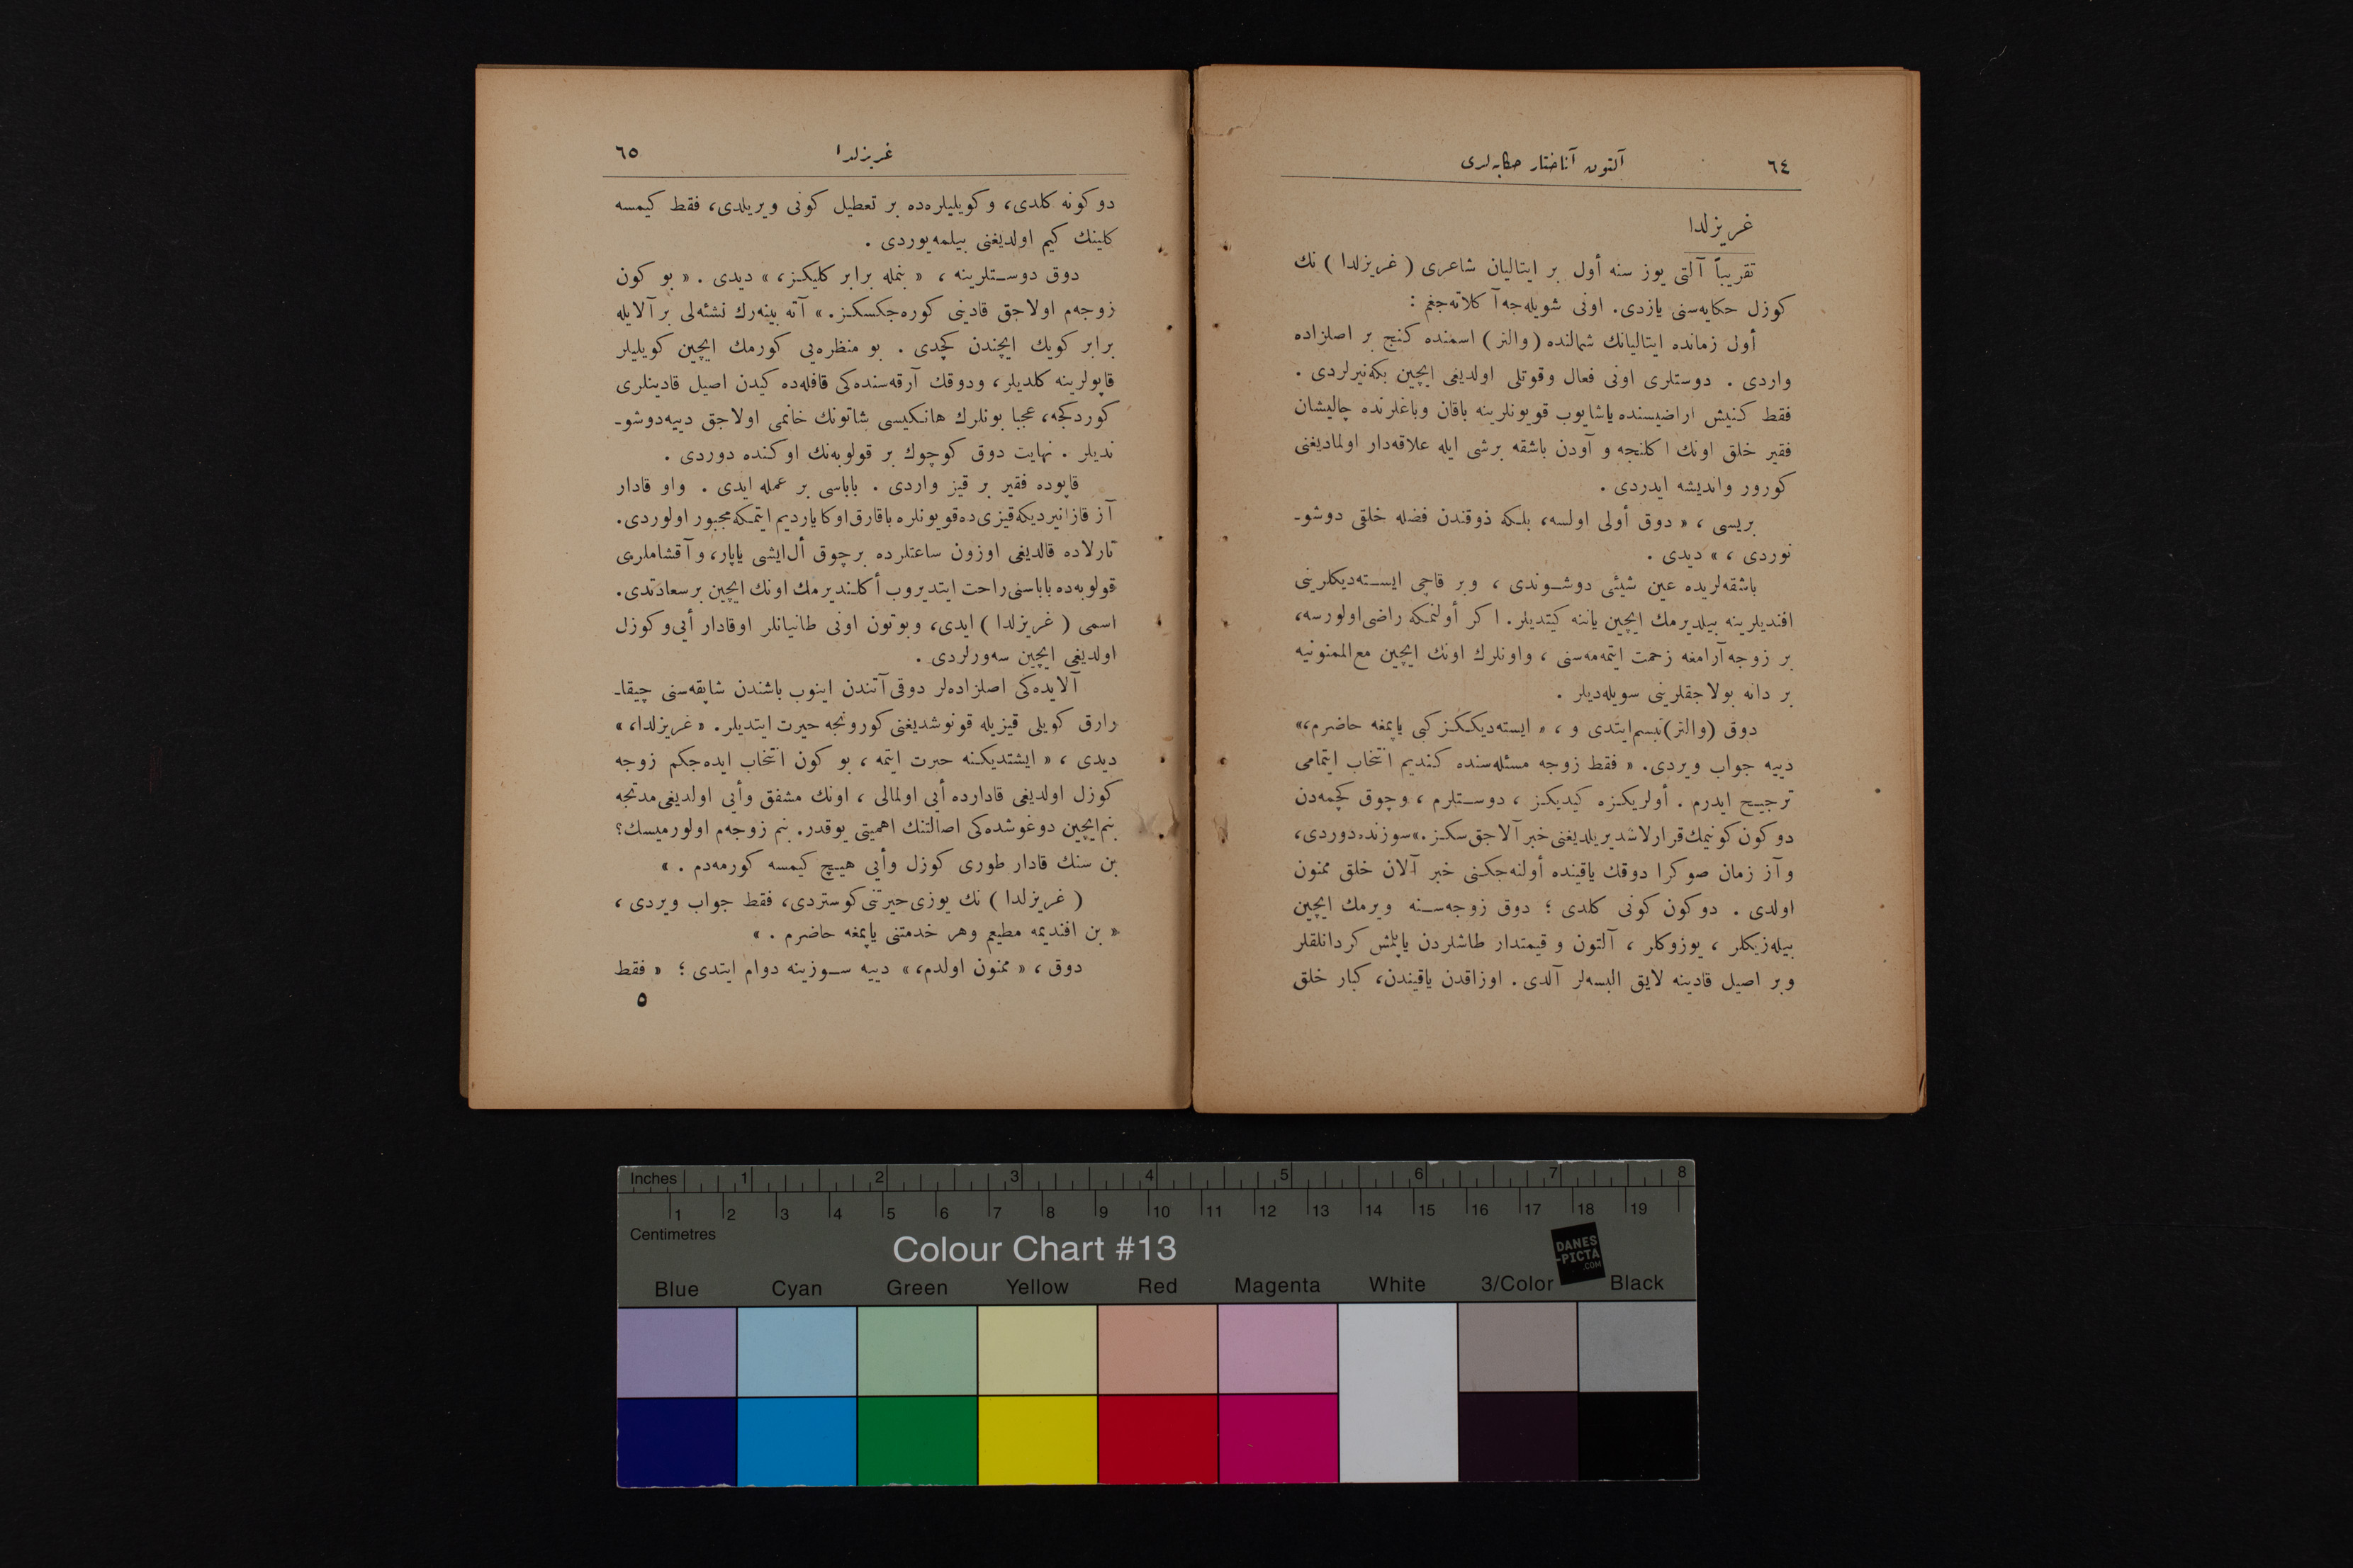 ٦٤
آلتون آناختار حكايه‌لرى
غريزلدا
تقريباً آلتى يوز سنه أول بر ايتاليان شاعرى ( غريزلدا ) نك
كوزل حكايه‌سنى يازدى. اونى شويله‌جه آكلاته‌جغم :
أول زمانده ايتاليانك شمالنده (والتر) اسمنده كنج بر اصلزاده
واردى . دوستلرى اونى فعال وقوتلى اولديغى ايچين بكه‌نيرلردى .
فقط كنيش اراضيسنده ياشايوب قويونلرينه باقان وباغلرنده چاليشان
فقير خلق اونك اكلنجه و آودن باشقه برشى ايله علاقه‌دار اولماديغنى
كورور وانديشه ايدردى .
بريسى ، « دوق أولى اولسه، بلكه ذوقندن فضله خلقى دوشو-
نوردى ، » ديدى .
باشقه‌لريده عين شيئى دوشوندى ، وبر قاچى ايسته‌ديكلرينى
افنديلرينه بيلديرمك ايچين ياننه كيتديلر. اكر أولنمكه راضى اولورسه،
بر زوجه آرامغه زحمت ايتمه‌مه‌سنى ، واونلرك اونك ايچين مع‌الممنونيه
بر دانه بولاجقلرينى سويله‌ديلر .
دوق (والتر) تبسم ايتدى و ، « ايسته‌ديككز كبى ياپمغه حاضرم،»
دييه جواب ويردى. « فقط زوجه مسئله‌سنده كنديم انتخاب ايتمامى
ترجيح ايدرم . أولريكزه كيديكز ، دوستلرم ، وچوق كچمه‌دن
دوكون كونيمك قرارلاشديريلديغنى خبر آلاجق‌سكز.» سوزنده دوردى،
وآز زمان صوكرا دوقك ياقينده أولنه‌جكنى خبر آلان خلق ممنون
اولدى . دوكون كونى كلدى ؛ دوق زوجه‌سنه ويرمك ايچين
بيله‌زيكلر ، يوزوكلر ، آلتون و قيمتدار طاشلردن ياپلمش كردانلقلر
وبر اصيل قادينه لايق البسه‌لر آلدى . اوزاقدن ياقيندن، كبار خلق
غريزلدا
٦٥
دوكونه كلدى، وكويليلره‌ده بر تعطيل كونى ويريلدى، فقط كيمسه
كلينك كيم اولديغنى بيلمه‌يوردى .
دوق دوستلرينه ، « بنمله برابر كليكز، » ديدى . « بو كون
زوجه‌م اولاجق قادينى كوره‌جكسكز. » آته بينه‌رك نشئه‌لى بر آلايله
برابر كويك ايچندن كچدى . بو منظره‌يى كورمك ايچين كويليلر
قاپولرينه كلديلر، ودوقك آرقه‌سنده‌كى قافله‌ده كيدن اصيل قادينلرى
كوردكجه، عجبا بونلرك هانكيسى شاتونك خانمى اولاجق دييه دوشو-
نديلر . نهايت دوق كوچوك بر قولوبه‌نك اوكنده دوردى .
قاپوده فقير بر قيز واردى . باباسى بر عمله ايدى . واو قادار
آز قازانيرديكه قيزى ده قويونلره باقارق اوكا يارديم ايتمكه مجبور اولوردى.
تارلاده قالديغى اوزون ساعتلرده بر چوق أل ايشى ياپار، و آقشاملرى
قولوبه‌ده باباسنى راحت ايتديروب أكلنديرمك اونك ايچين بر سعادتدى.
اسمى ( غريزلدا ) ايدى، وبوتون اونى طانيانلر اوقادار أيى وكوزل
اولديغى ايچين سه‌ورلردى .
آلايده‌كى اصلزاده‌لر دوقى آتندن اينوب باشندن شاپقه‌سنى چيقا-
رارق كويلى قيزيله قونوشديغنى كورونجه حيرت ايتديلر. « غريزلدا، »
ديدى ، « ايشتديكنه حيرت ايتمه ، بو كون انتخاب ايده‌جكم زوجه
كوزل اولديغى قادارده أيى اولمالى ، اونك مشفق وأيى اولديغى مدتجه
بنم ايچين دوغوشده‌كى اصالتنك اهميتى يوقدر. بنم زوجه‌م اولورميسك؟
بن سنك قادار طورى كوزل وأيى هيچ كيمسه كورمه‌دم . »
( غريزلدا ) نك يوزى حيرتنى كوستردى، فقط جواب ويردى ،
« بن افنديمه مطيعم وهر خدمتنى ياپمغه حاضرم . »
دوق ، « ممنون اولدم، » دييه سوزينه دوام ايتدى ؛ « فقط
٥
Inches 1 2 3 4 5 6 7 8
1 2 3 4 5 6 7 8 9 10 11 12 13 14 15 16 17 18 19
Centimetres
Colour Chart #13
DANES
-PICTA
.COM
Blue Cyan Green Yellow Red Magenta White 3/Color Black